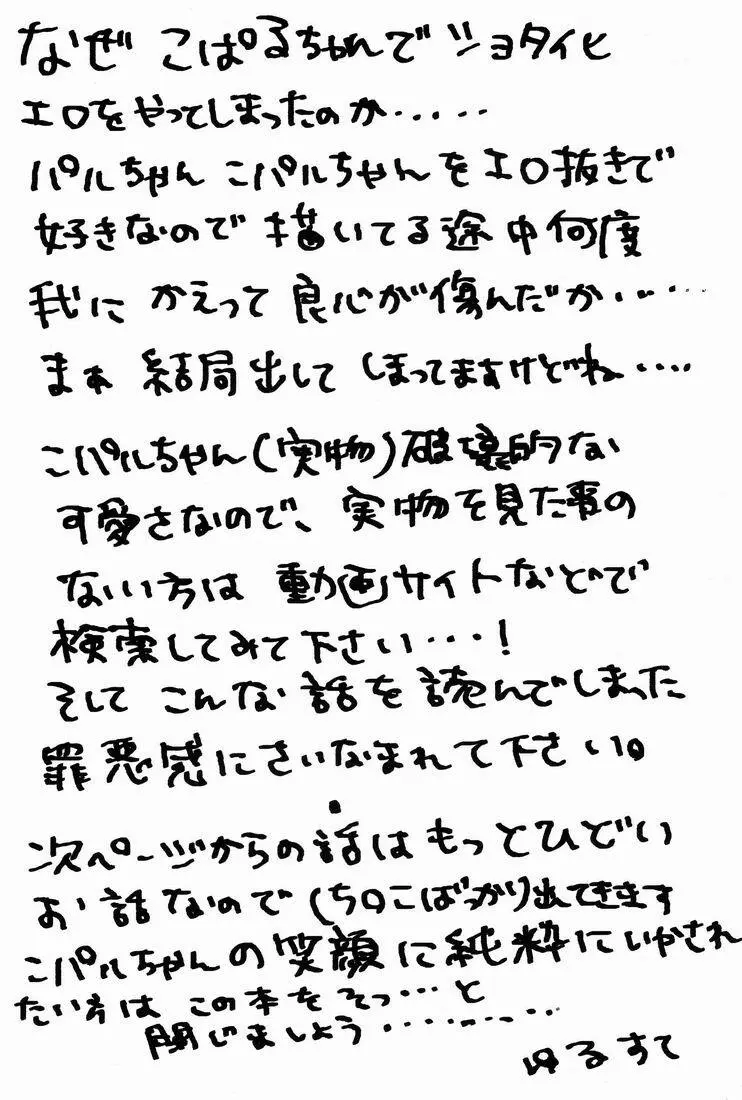 なぜ こぱるちゃんで ショタイヒ
エロをやってしまったのか‥‥‥
パルちゃん こパルちゃんをエロ抜きで
好きなので 描いてる途中何度
我に かえって 良心が傷んだか‥‥‥
まぁ 結局出して しまってますけどね‥‥
こパルちゃん(実物)破壊的な
可愛さなので、実物を見た事の
ない方は 動画サイトなどで
検索してみて下さい…!
そして こんな話を読んでしまった
罪悪感にさいなまれて下さい。
次ページからの話は もっとひどい
お話なので (ち〇こばっかり出てきます
こパルちゃんの笑顔に純粋にいやされ
たい方は この本をそっ…と
閉じましょう‥‥‥‥‥
ゆるすて